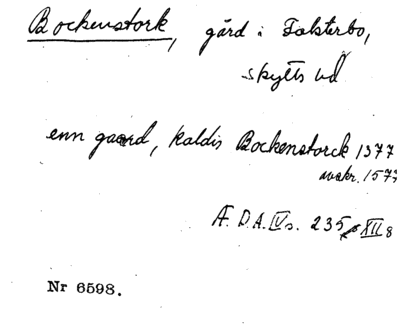 Bockenstork, gård i Falsterbo,
Skytts hd
enn gaard, kaldis Bockenstorck 1377
avskr. 1577
Æ. D.A. IV s. 235, XII 8
Nr 6598.